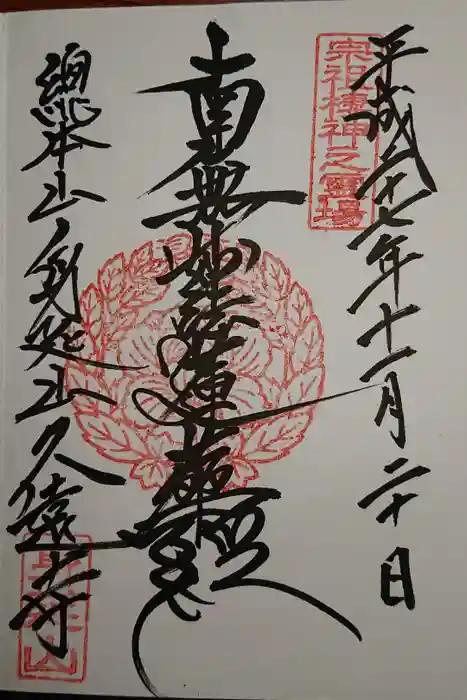 平成二十七年十一月二十日
宗祖棲神之霊場
南無妙法蓮華経
總本山身延山久遠寺
身延山